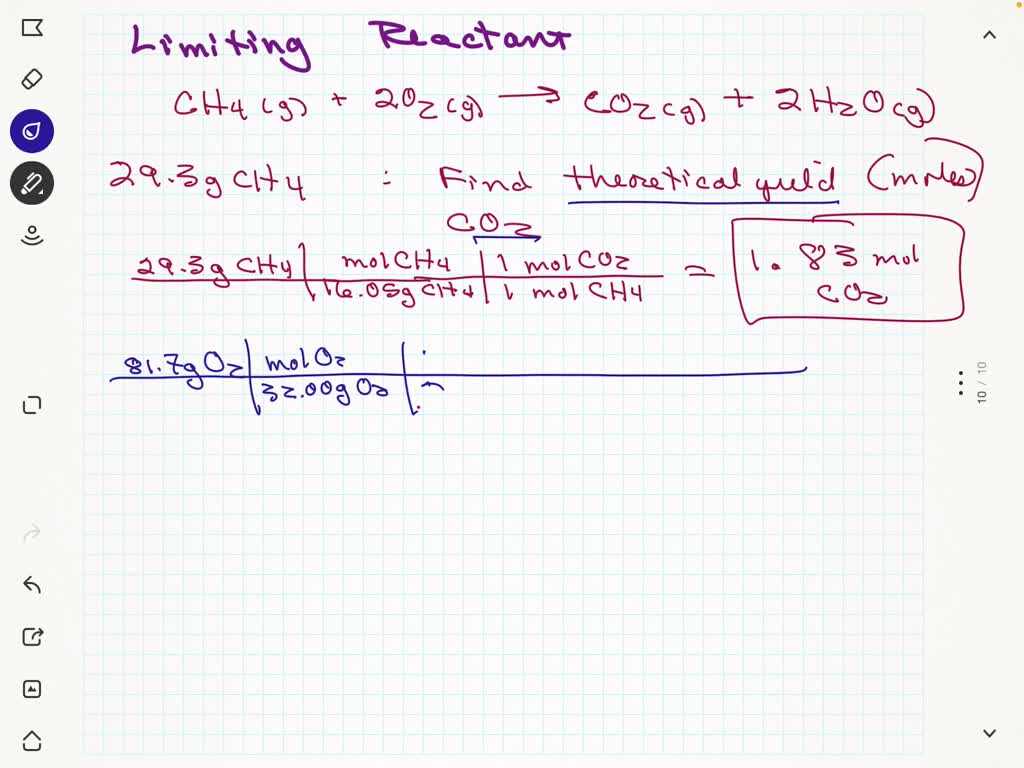 Limiting Reactant
CH4 (g) + 2O2 (g) → CO2 (g) + 2H2O (g)
29.3g CH4 : Find theoretical yield (moles)
CO2
29.3g CH4 | mol CH4 | 1 mol CO2 = 1.83 mol
16.05g CH4 | 1 mol CH4 CO2
81.7g O2 | mol O2 |
32.00g O2 |
10 / 10